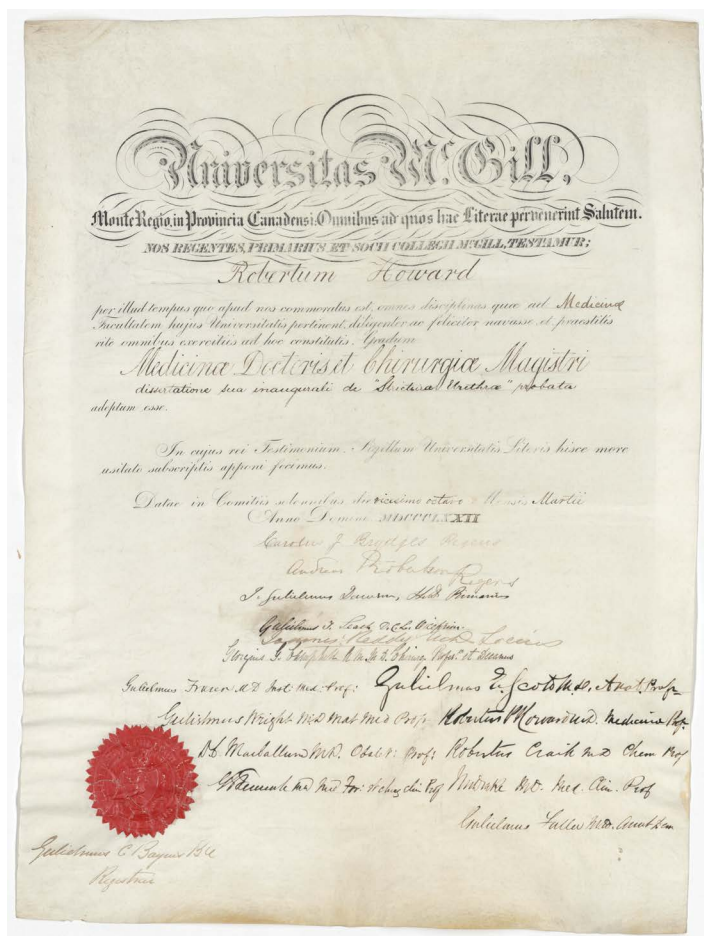 Universitas McGill,
Monte Regio, in Provincia Canadensi: Omnibus ad quos hae Literae pervenerint Salutem.
NOS REGENTES, PRIMARIUS ET SOCII COLLEGII McGILL, TESTAMUR;
Robertum Howard
per illud tempus quo apud nos commoratus est, omnes disciplinas quae ad Medicinæ
Facultatem hujus Universitatis pertinent, diligenter ac feliciter navasse, et, praestitis
rite omnibus exercitiis ad hoc constitutis, Gradum
Medicinæ Doctoris et Chirurgiæ Magistri
dissertatione sua inaugurali de "Strictura Urethræ" probata
adeptum esse.
In cujus rei Testimonium, Sigillum Universitatis Literis hisce more
usitato subscriptis apponi fecimus.
Datae in Comitiis solennibus die vicesimo octavo Mensis Martii
Anno Domini MDCCCLXXII
J. Gulielmus Dawson, Primarius
Gulielmus Fraser M.D. Inst: Med. Prof: Gulielmus E. Scott M.D. Anat. Profr
Gulielmus Wright M.D. Mat Med Prof. Robertus P Howard M.D. Medicinæ Prof.
D.C. Maccallum M.D. Obst: Prof: Robertus Craik M.D Chem Prof
M.D. Med. Clin. Prof
Gulielmus Fuller M.D. Anat Dem
Gulielmus C Baynes BA